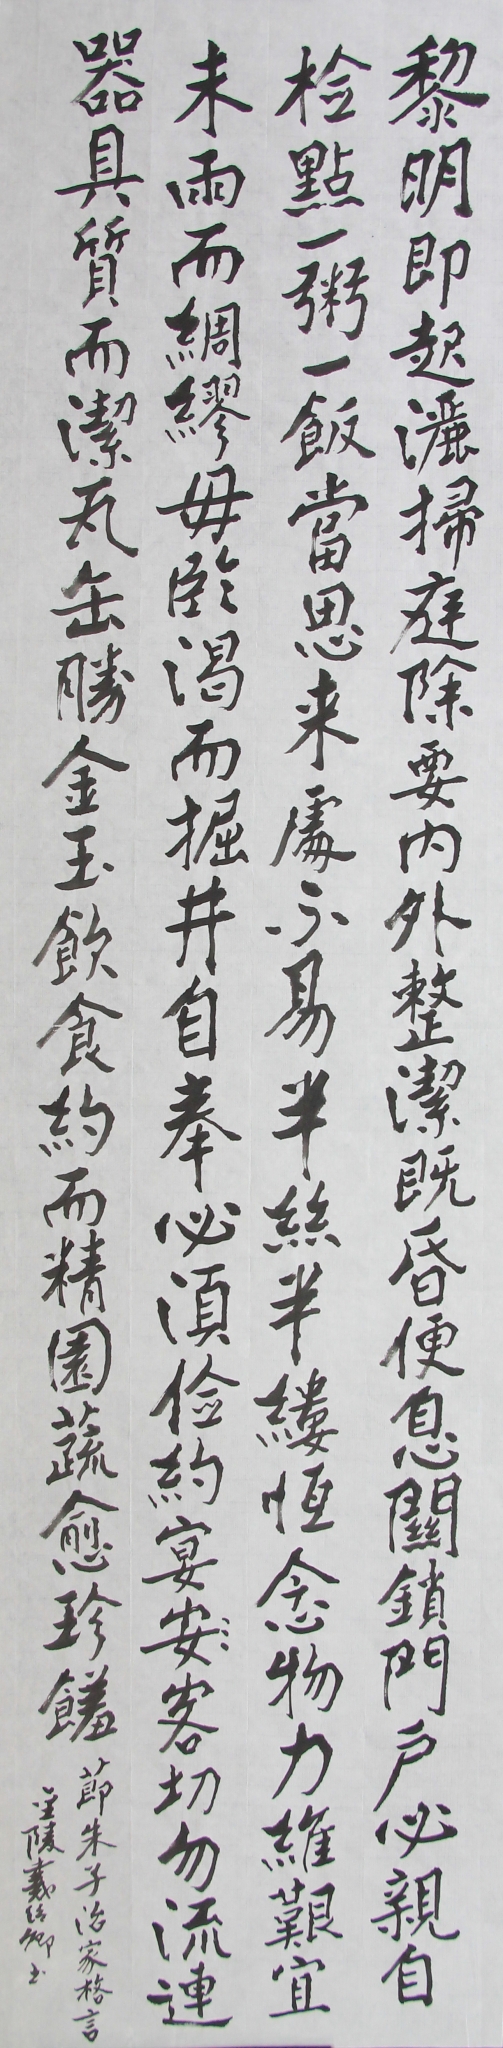 黎明即起灑掃庭除要内外整潔既昏便息關鎖門户必親自
检點一粥一飯當思来處不易半絲半縷恒念物力維艱宜
未雨而綢繆毋臨渴而掘井自奉必湏儉約宴安客切勿流連
器具質而潔瓦缶勝金玉飲食約而精園蔬愈珍饈
節朱子治家格言
金陵戴 卿书